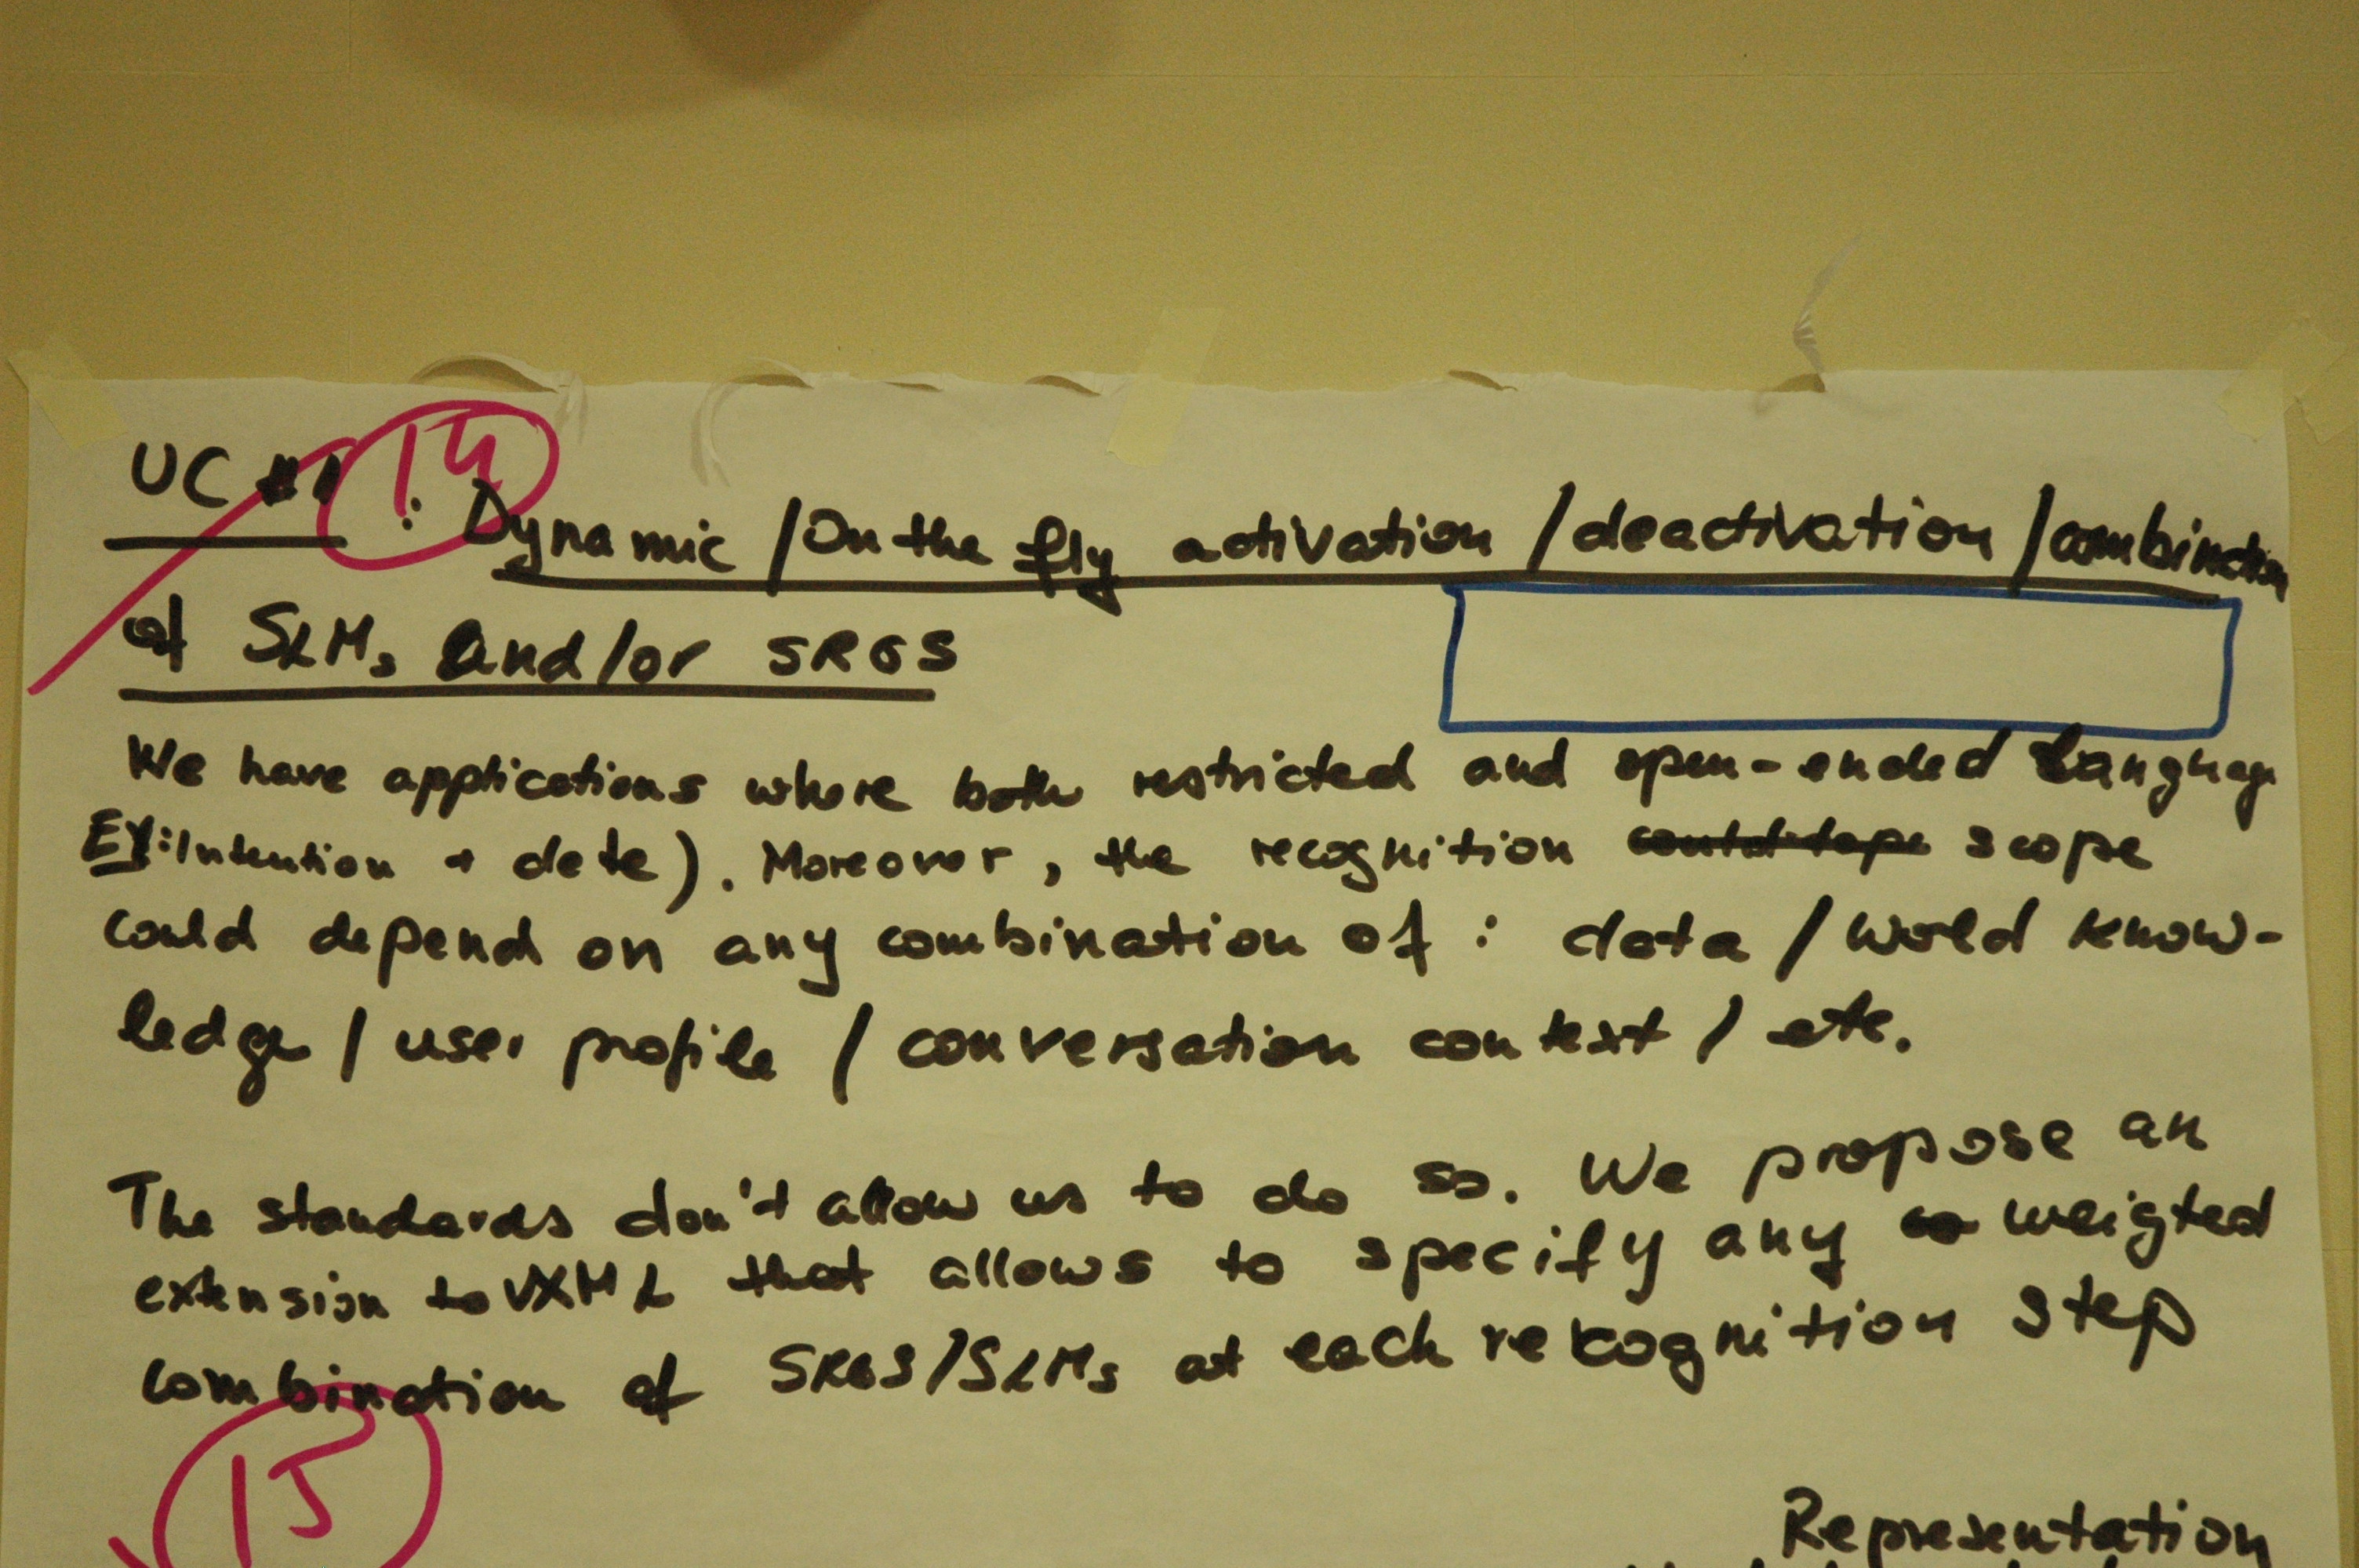 UC #1 14 : Dynamic / On the fly activation / deactivation / combination
of SLMs and/or SRGS
We have applications where both restricted and open-ended language
Ex: Intention + date). Moreover, the recognition scope
could depend on any combination of : data / world know-
ledge / user profile / conversation context / etc.
The standards don't allow us to do so. We propose an
extension to VXML that allows to specify any weigted
combination of SRGS/SLMs at each recognition step
15
Representation